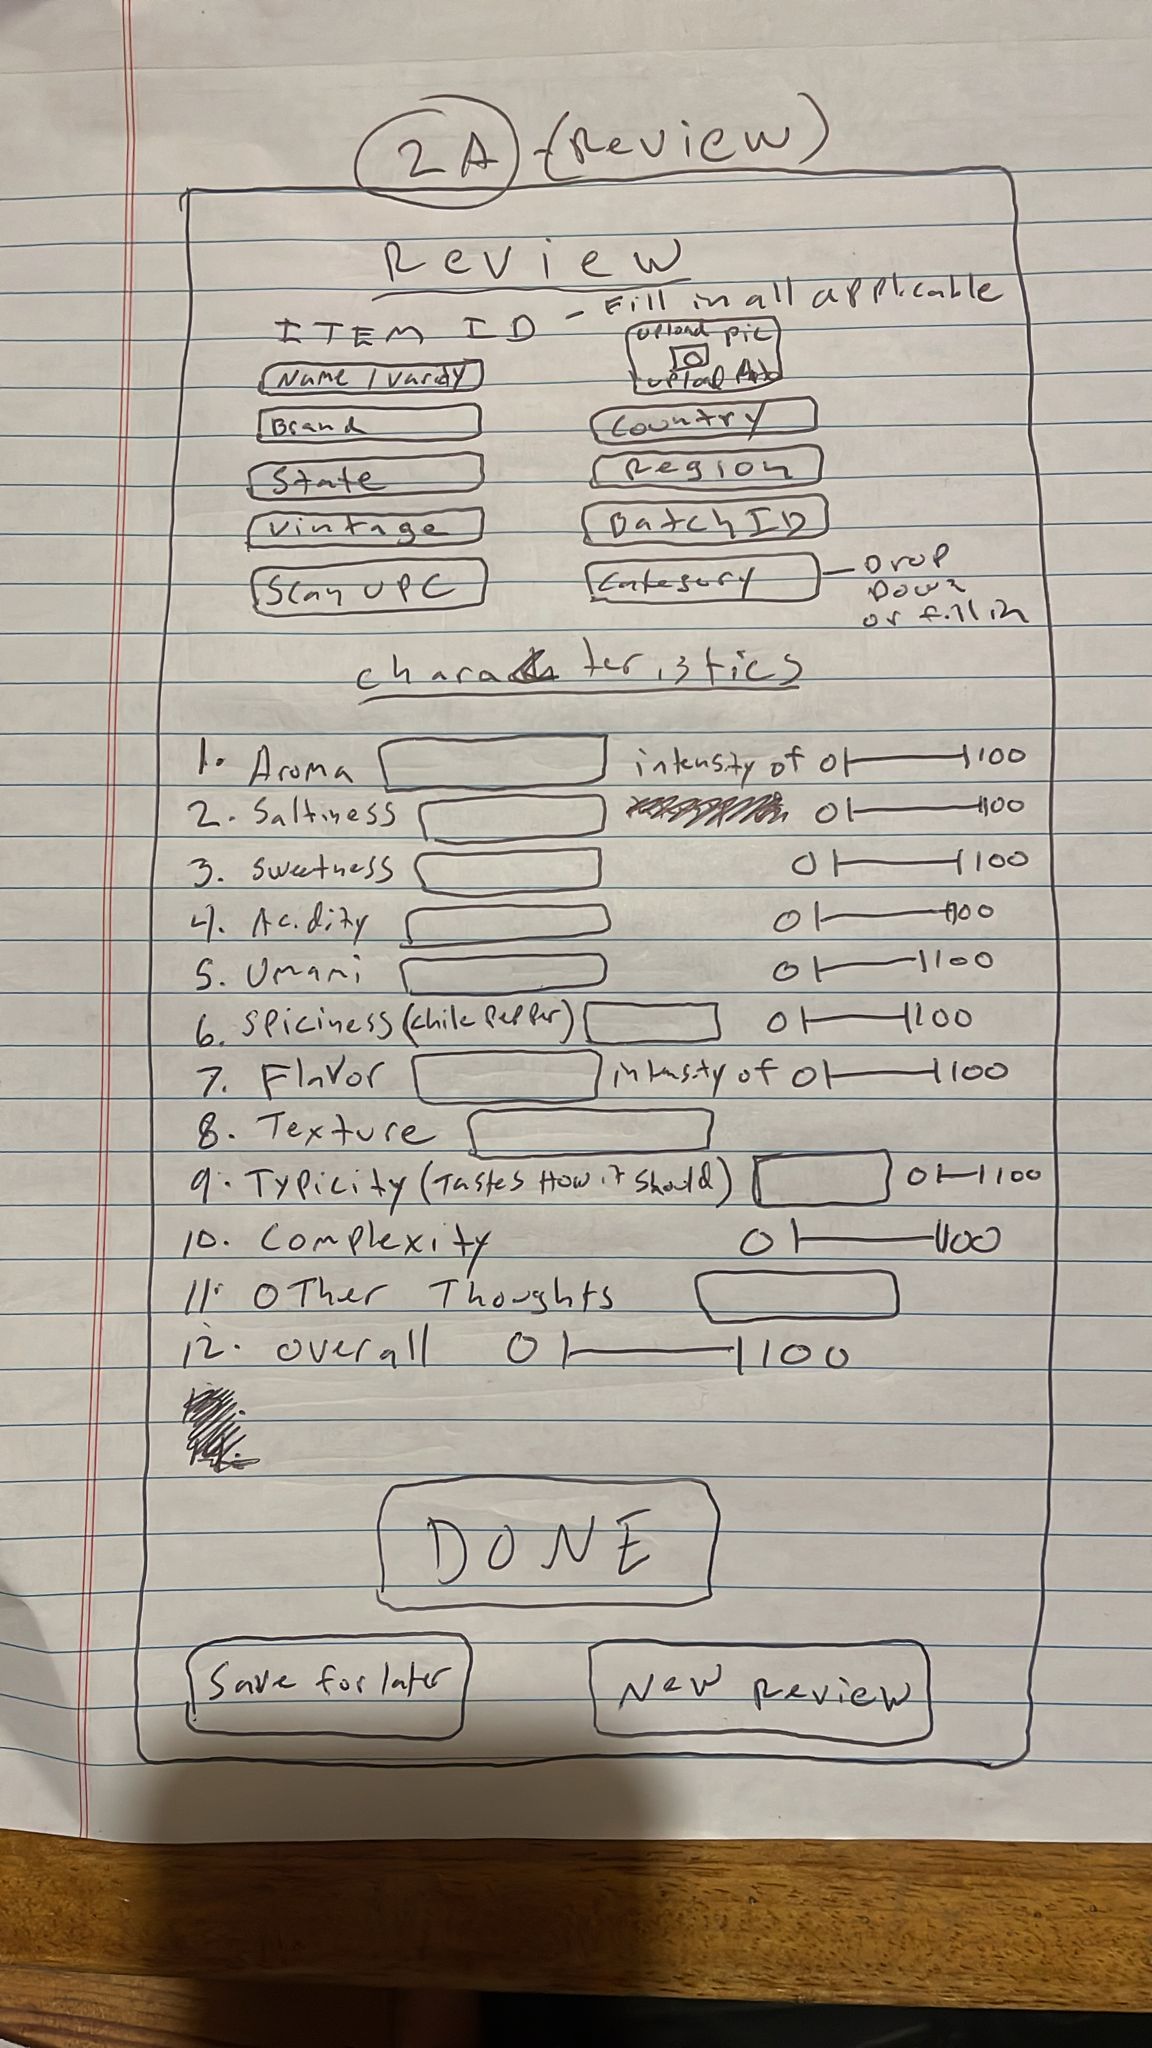 2A - (Review)
Review
ITEM ID - Fill in all applicable
Upload pic
Name / Variety
upload Photo
Brand
Country
State
Region
Vintage
Batch ID
Scan UPC
Category
- Drop
Down
or fill in
Characteristics
1. Aroma intensity of 0 100
2. Saltiness 0 100
3. Sweetness 0 100
4. Acidity 0 100
5. Umami 0 100
6. Spiciness (chile pepper) 0 100
7. Flavor intensity of 0 100
8. Texture
9. Typicity (Tastes How it Should) 0 100
10. Complexity 0 100
11. Other Thoughts
12. Overall 0 100
DONE
Save for later
New Review